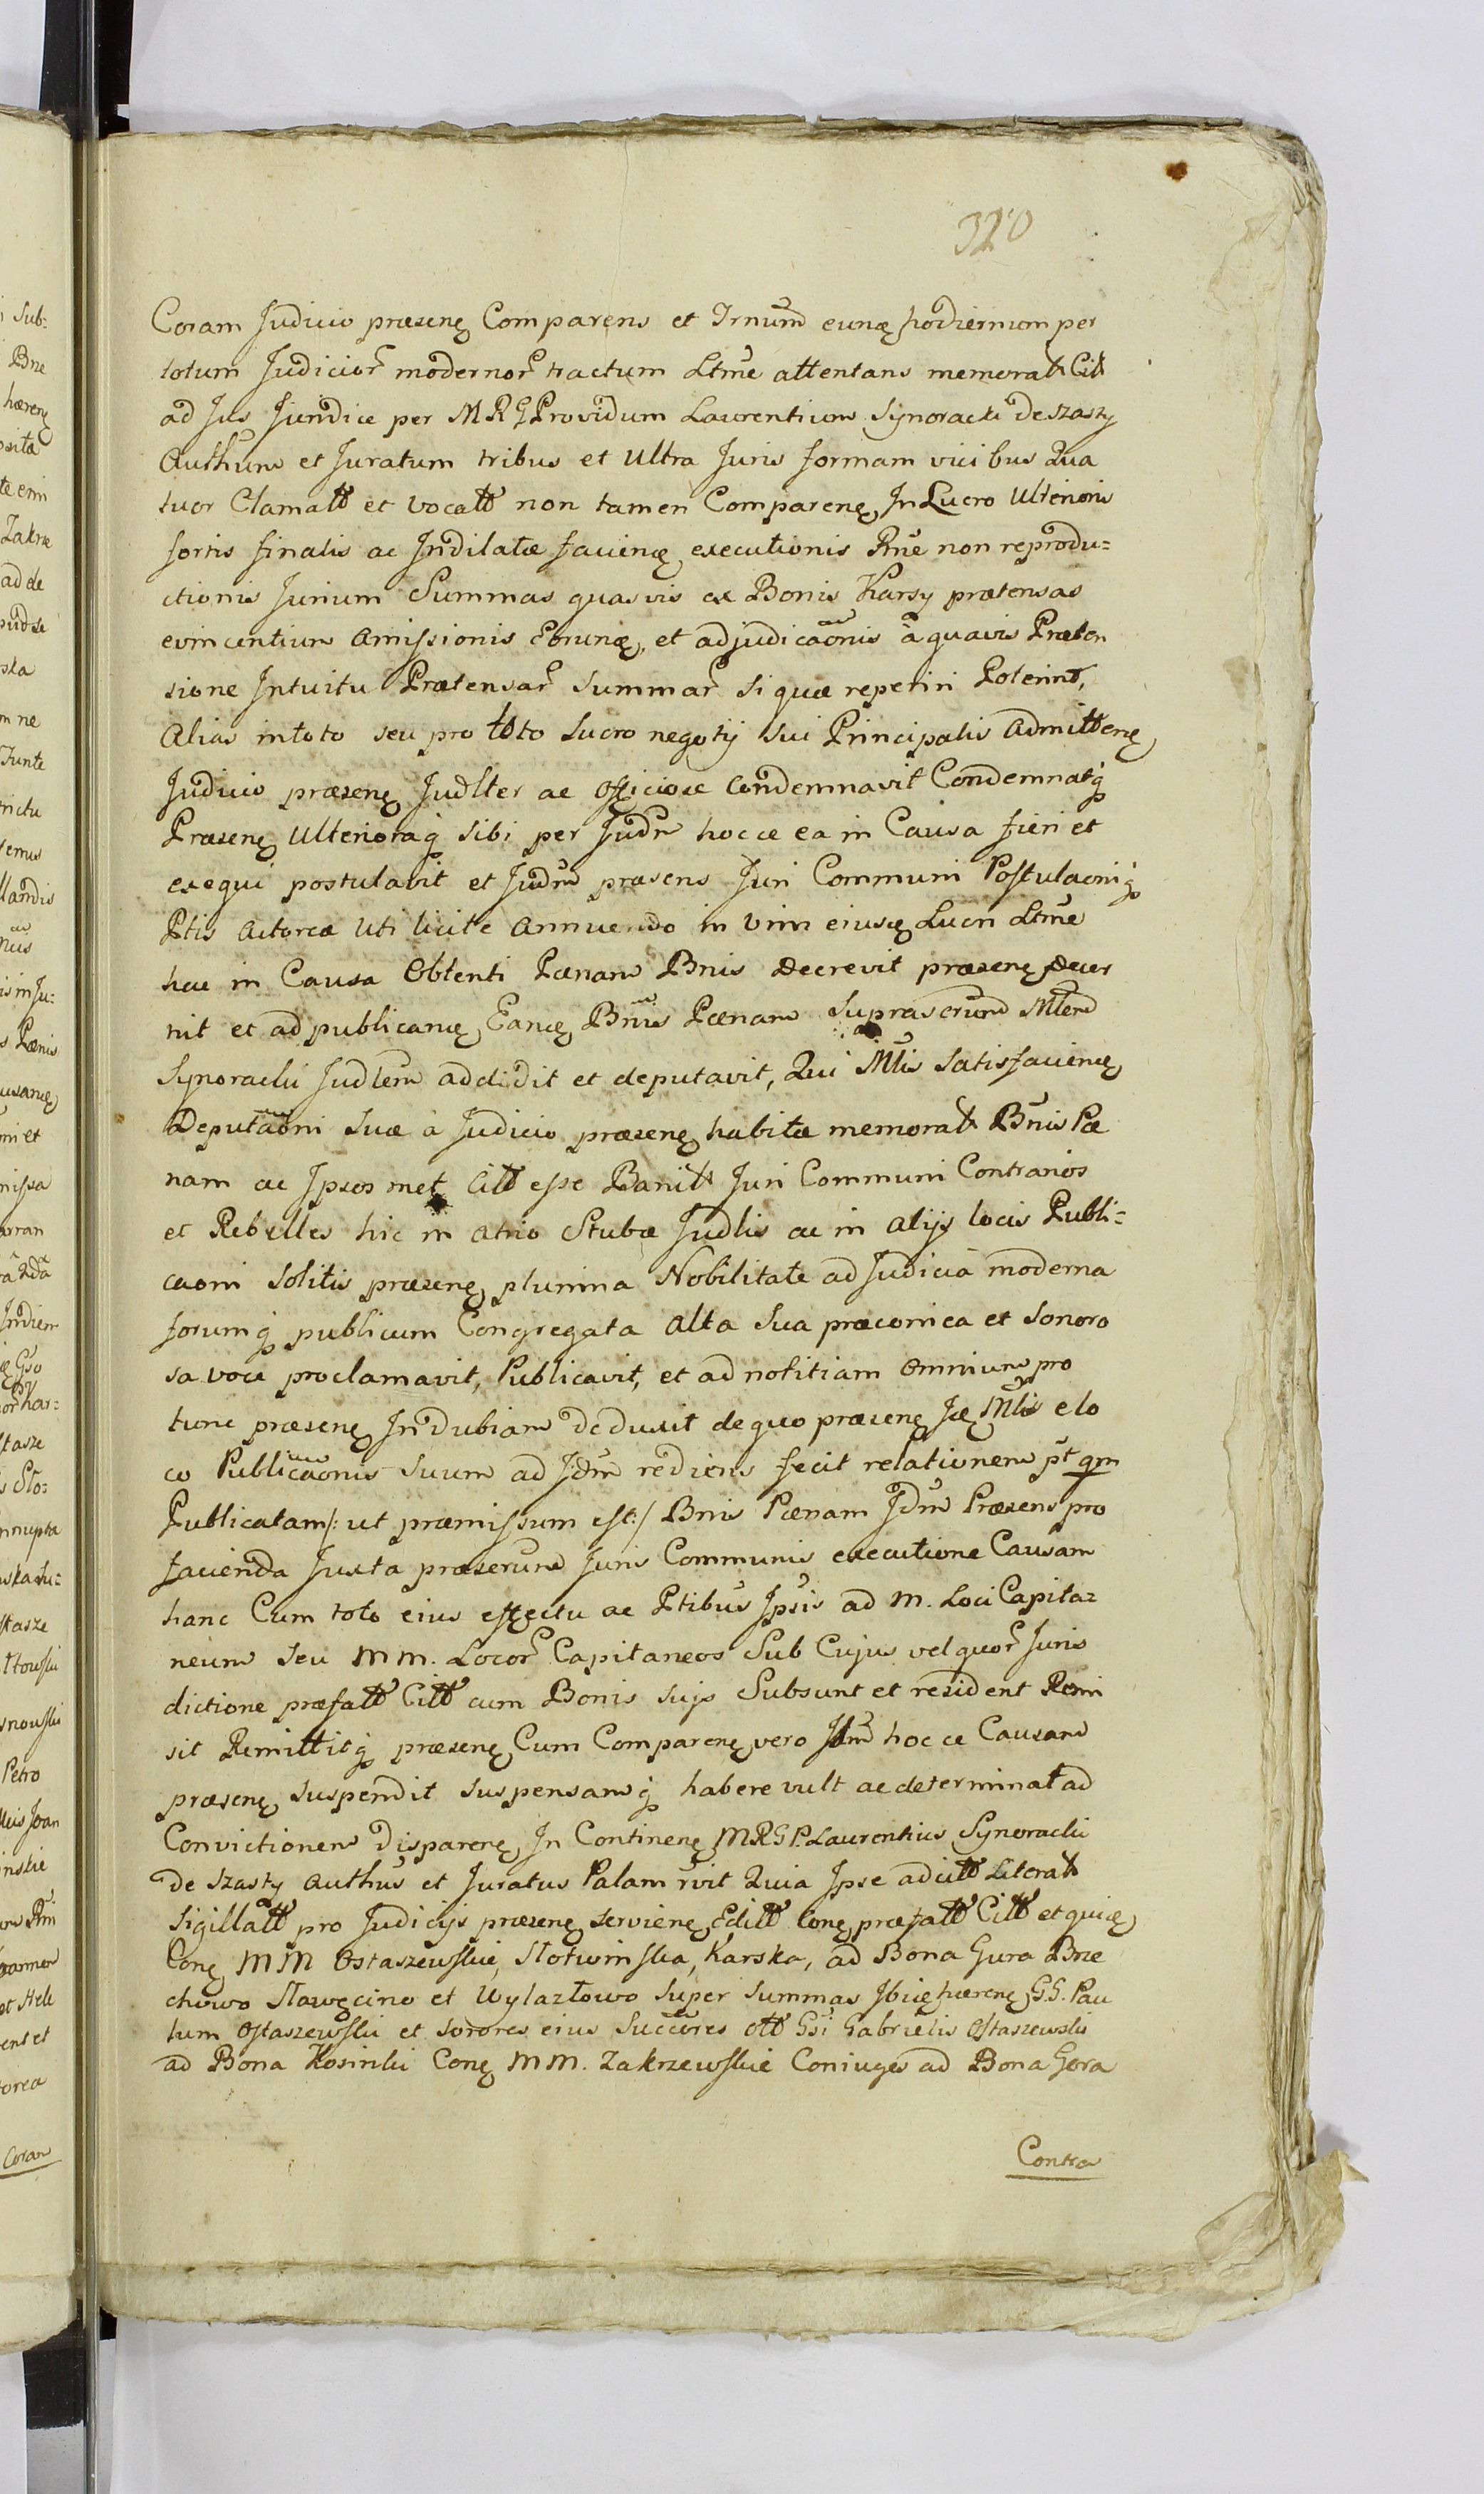 320
Coram Judicio præsenę Comparens et Trnum̃ eunę hodiernum per
totum Judicior modernor tractum Ltme attentans memorat Cit
ad Jus Juridice per MRG Providum Laurentium Synoracki de Szasty
Authum et Juratum tribus et Ultra Juris formam vicibus Qua
tuor Clamatt et Vocatt non tamen Comparenę, In Lucro Ulterioris
sortis finalis ac Indilatæ facienę executionis Rne non reprodu=
ctionis Jurium Summas quasvis ex Bonis Karsy prætensas
evincentium amissionis Eorunę, et adjudicaonis à quavis Præten
sione Intuitu Prætensar Summar si quæ reperiri Poterint,
Alias in toto seu pro toto Lucro negotij sui Principalis admittenę
Judicio præsenę Judlter ac officiose Condemnavit Condemnatq
Præsenę Ulterioraq sibi per Judm hocce ea in Causa fieri et
exequi postulavit et Judm præsens Juri Communi Postulaoniq
Ptis Actoreæ Uti licite Annuendo in Vim eiusę Lucri Ltme
hac in Causa Obtenti Pænam Bnis Decrevit præsenę Decer
nit et ad publicanę Eanę Bnis Pænam Suprascrum Mlem
Synoracki Judlem addidit et deputavit, Qui Mlis Satisfacienę
Deputaoni Suæ à Judicio præsenę habitæ memorat Bnis Pæ
nam ac Ipsosmet Citt esse Banitt Juri Communi Contrarios
et Rebelles hic in atrio Stubæ Judlis ac in alijs locis Publi=
caoni solitis præsenę plurima Nobilitate ad Judicia moderna
forumq publicum Congregata alta Sua præconica et Sonoro
sa voce proclamavit, Publicavit, et ad notitiam omnium pro
tunc præsenę Indubiam deduxit de quo præsenę Ję Mlis e lo
co Publicaonis Suum ad Jdm rediens fecit relationem pt qm
Publicatam /: ut præmissum est :/ Bnis Pænam Jdm Præsens pro
facienda Juxta præscrum Juris Communis executione Causam
hanc Cum toto eius effectu ac Ptibus Ipsis ad M. Loci Capita=
neum seu MM. Locor Capitaneos Sub Cujus vel quor Juris
dictione præfatt Citt cum Bonis Sujs Subsunt et resident Remi
sit Remittitq præsenę Cum Comparenę vero Jdm hocce Causam
præsenę suspendit suspensamq habere vult ac determinat ad
Convictionem Disparenę In Continenę MRGP. Laurentius Synoracki
de Szasty Authus et Juratus Palam rvit Quia Ipse ad citt Literat
Sigillatt pro Judicijs præsenę servienę Editt Conę præfatt Citt et quię
Conę MM Ostaszewskie, Słotwinska, Karska, ad Bona Gura Brze
chowo Stawęcino et Wylazłowo Super Summas Ibię hærenę GG. Pau
lum Ostaszewski et Sorores eius Succores ott Gsi Gabrielis Ostaszewski
ad Bona Kosinki Conę MM. Zakrzewskie Coniuges ad Bona Gora
Contra